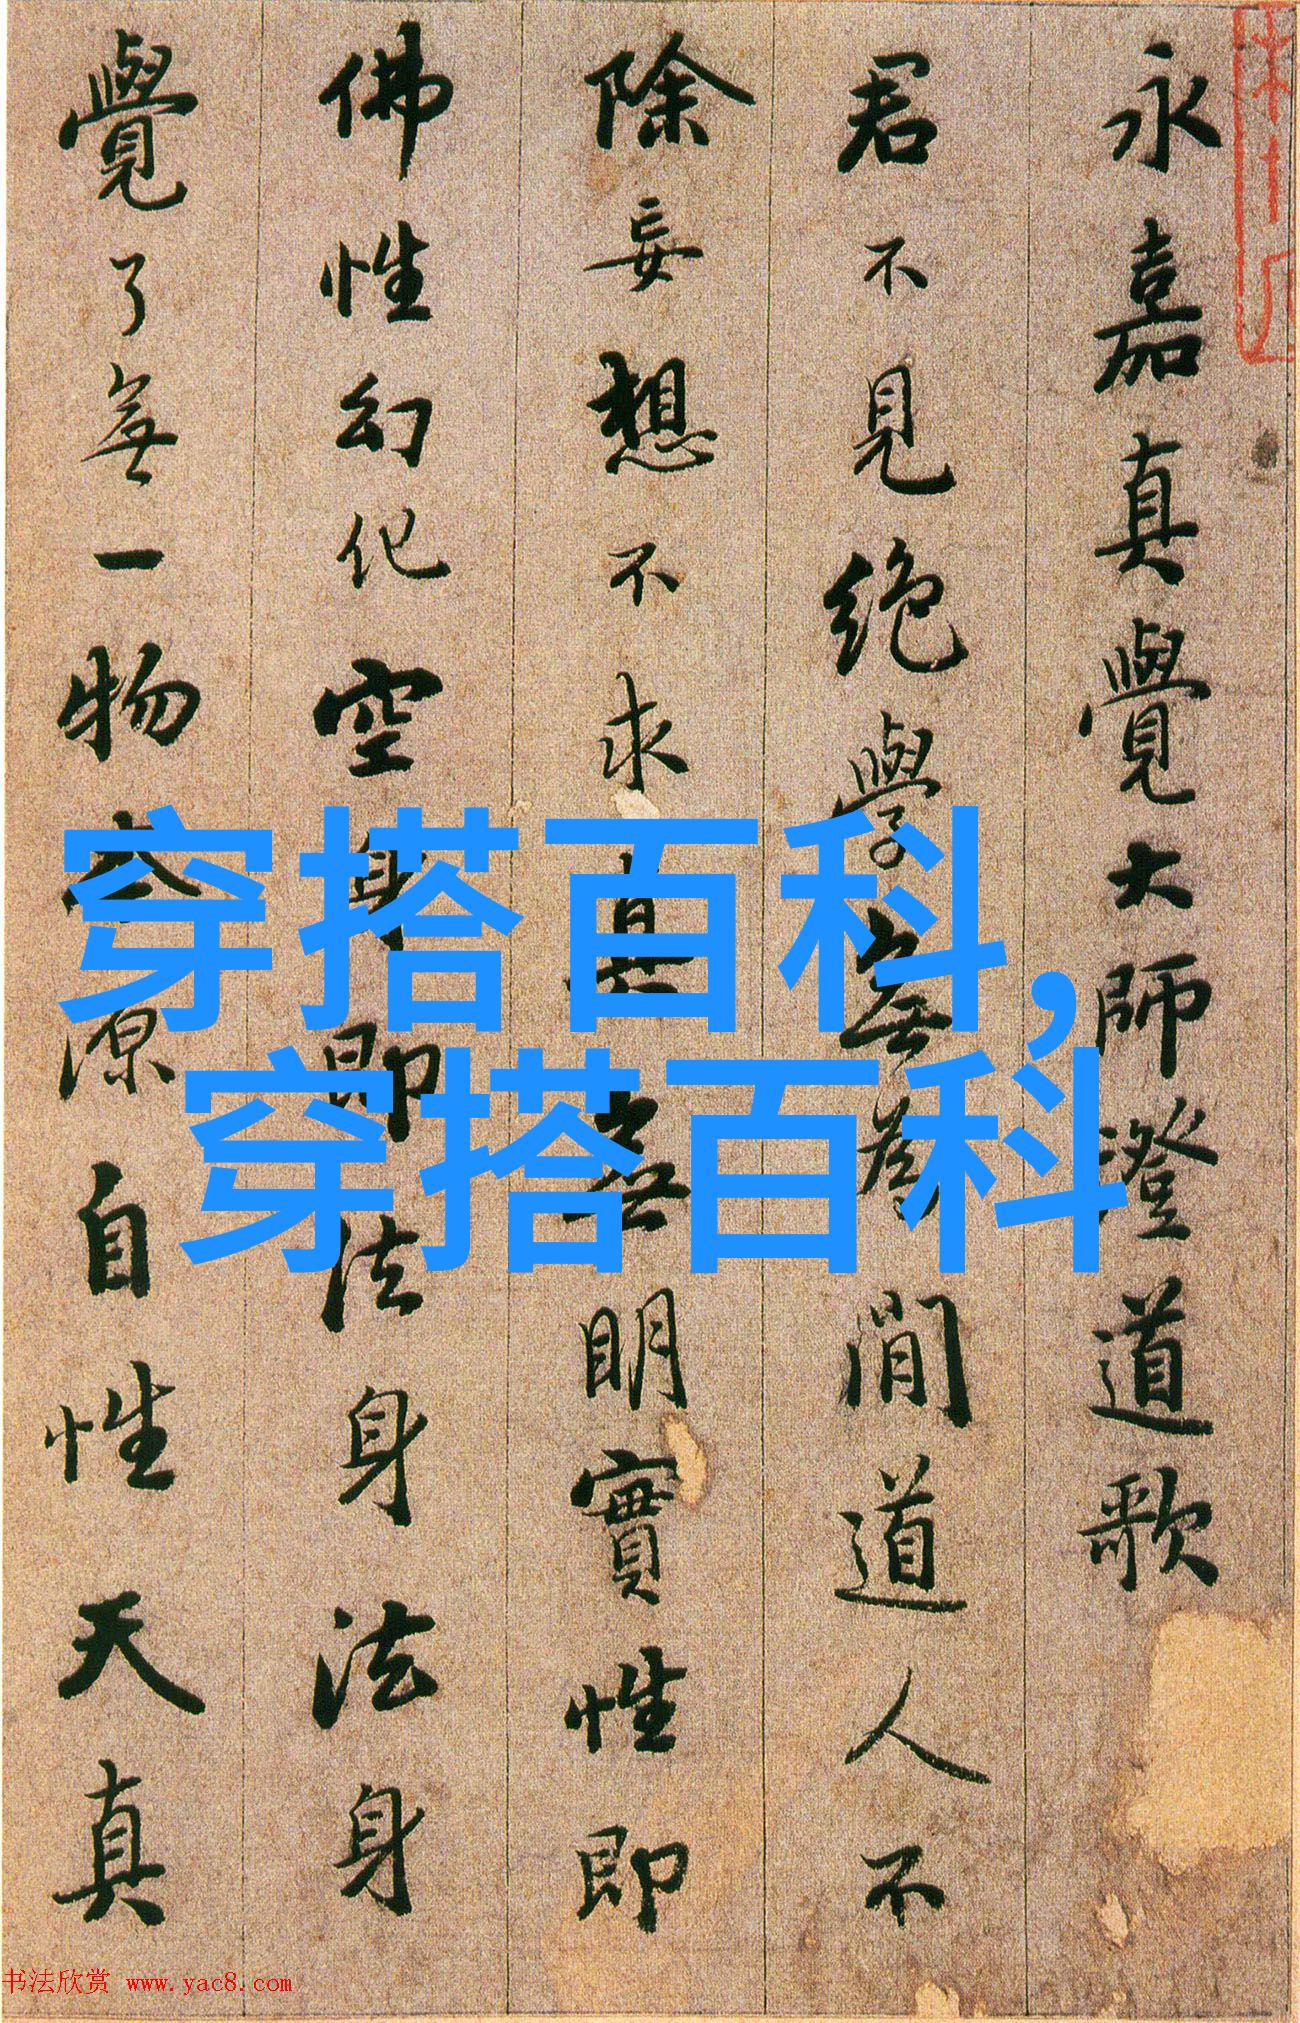 永嘉真覺大師澄道歌
君不見絶學無為閒道人不
除妄想不求真無明實性即
佛性幻化空身即法身法身
覺了無一物本源自性天真
穿搭百科,
穿搭百科
书法欣赏 www.yac8.com